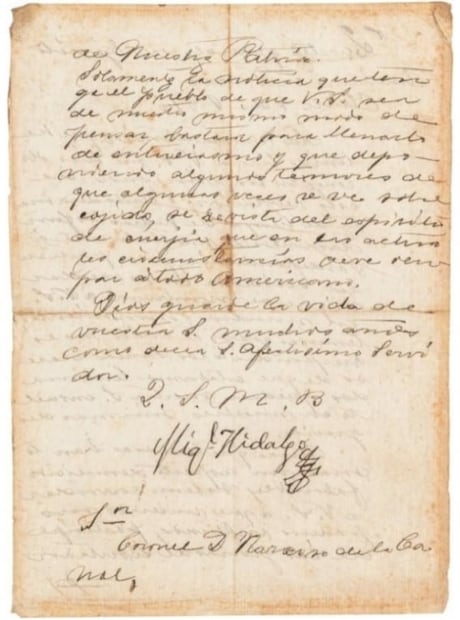 de Nuestra Patria.
Solamente la noticia que ten
ga el pueblo de que V.S. sea
de nuestro mismo modo de
pensar, bastará para llenarlo
de entuciasmo y que depo-
niendo algunos temores de
que algunas veces se ve sobre
cojido, se revista del espiritu
de energia que en las actua
les circunstancias deve ocu
par á todo Americano.
Dios guarde la vida de
vuestra S. muchos años
como decea S. afectisimo Servi
dor.
Q. S. M. B
Migl. Hidalgo
Sor
Coronel D Narciso de la Ca
nal,